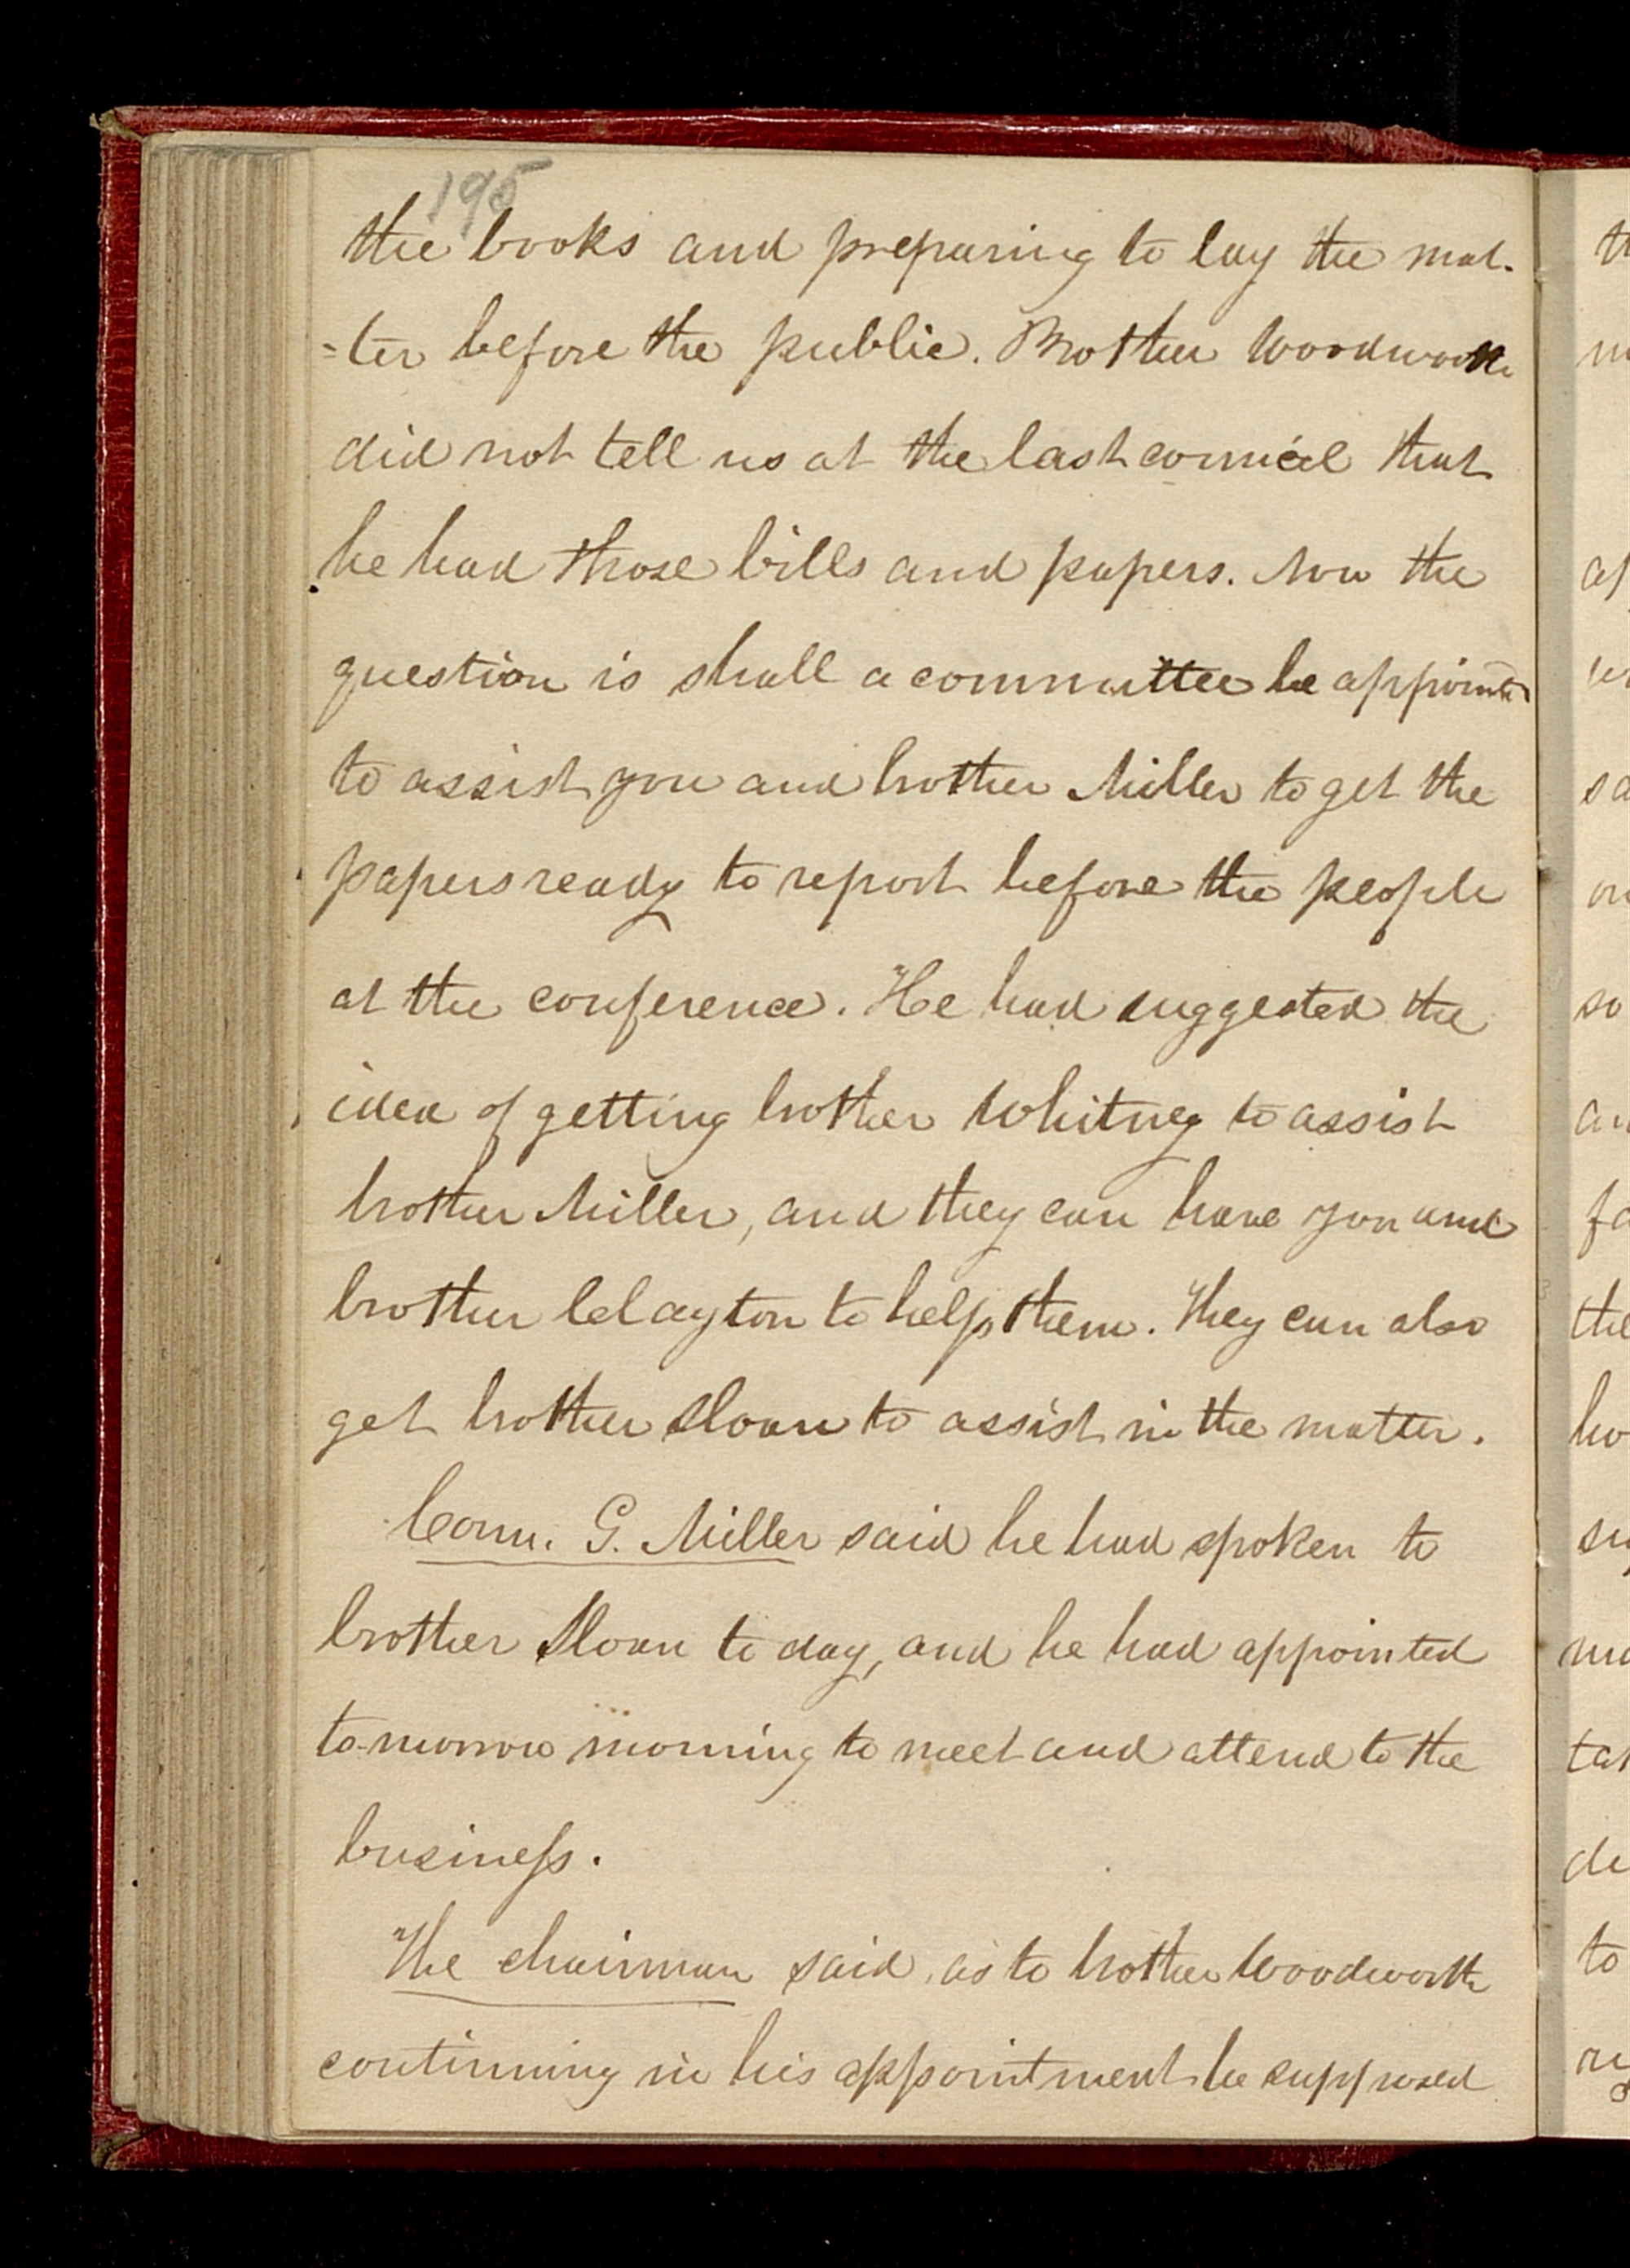 195
the books and preparing to lay the mat-
=ter before the public. Brother Woodworth
did not tell us at the last council that
he had those bills and papers. Now the
question is shall a committee be appointed
to assist you and brother Miller to get the
papers ready to report before the people
at the conference. He had suggested the
idea of getting brother Whitney to assist
brother Miller, and they can have you and
brother Clayton to help them. They can also
get brother Sloan to assist in the matter.
Coun. G. Miller said he had spoken to
brother Sloan to day, and he had appointed
to-morrow morning to meet and attend to the
business.
The chairman said, as to brother Woodworth
continuing in his appointment he supposed